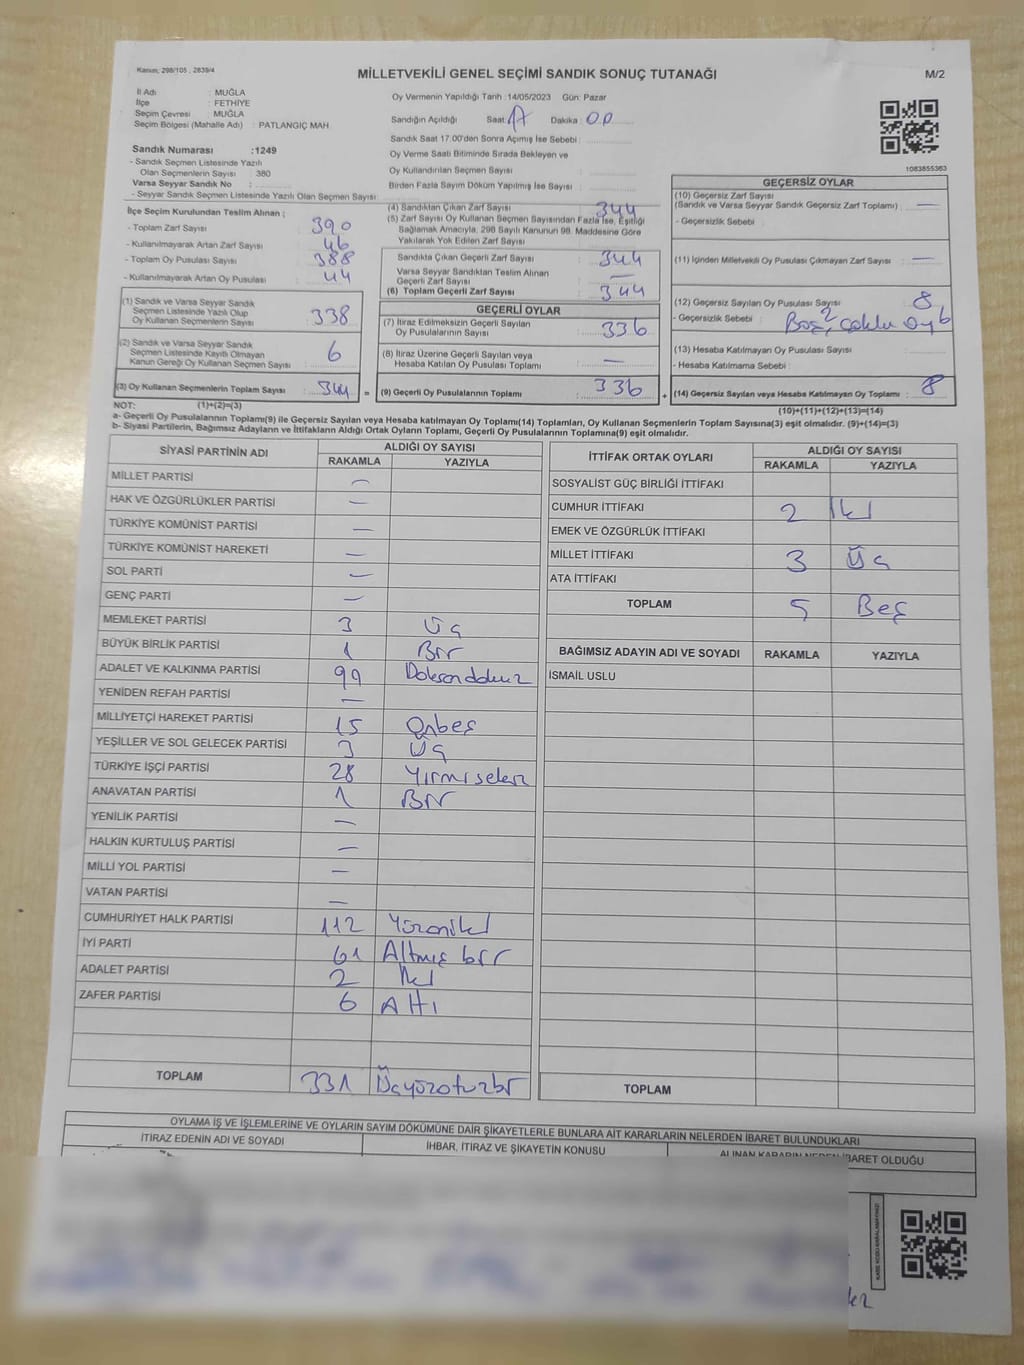 Kanun; 298/105 , 2839/4
MİLLETVEKİLİ GENEL SEÇİMİ SANDIK SONUÇ TUTANAĞI
M/2
İl Adı : MUĞLA
İlçe : FETHİYE
Seçim Çevresi : MUĞLA
Seçim Bölgesi (Mahalle Adı) : PATLANGIÇ MAH
Sandık Numarası :1249
- Sandık Seçmen Listesinde Yazılı
Olan Seçmenlerin Sayısı : 380
Varsa Seyyar Sandık No :
- Seyyar Sandık Seçmen Listesinde Yazılı Olan Seçmen Sayısı :
Oy Vermenin Yapıldığı Tarih :14/05/2023 Gün: Pazar
Sandığın Açıldığı Saat : Dakika : 00
Sandık Saat 17:00'den Sonra Açmış İse Sebebi :
Oy Verme Saati Bitiminde Sırada Bekleyen ve
Oy Kullandırılan Seçmen Sayısı :
Birden Fazla Sayım Döküm Yapılmış İse Sayısı :
1083855363
İlçe Seçim Kurulundan Teslim Alınan ;
- Toplam Zarf Sayısı : 390
- Kullanılmayarak Artan Zarf Sayısı : 46
- Toplam Oy Pusulası Sayısı : 388
- Kullanılmayarak Artan Oy Pusulası : 44
(1) Sandık ve Varsa Seyyar Sandık
Seçmen Listesinde Yazılı Olup
Oy Kullanan Seçmenlerin Sayısı : 338
(2) Sandık ve Varsa Seyyar Sandık
Seçmen Listesinde Kayıtlı Olmayan
Kanun Gereği Oy Kullanan Seçmen Sayısı : 6
(3) Oy Kullanan Seçmenlerin Toplam Sayısı : 344 =
(4) Sandıktan Çıkan Zarf Sayısı : 344
(5) Zarf Sayısı Oy Kullanan Seçmen Sayısından Fazla İse, Eşitliği
Sağlamak Amacıyla, 298 Sayılı Kanunun 98. Maddesine Göre
Yakılarak Yok Edilen Zarf Sayısı :
Sandıkta Çıkan Geçerli Zarf Sayısı : 344
Varsa Seyyar Sandıktan Teslim Alınan
Geçerli Zarf Sayısı : —
(6) Toplam Geçerli Zarf Sayısı : 344
GEÇERLİ OYLAR
(7) İtiraz Edilmeksizin Geçerli Sayılan
Oy Pusulalarının Sayısı : 336
(8) İtiraz Üzerine Geçerli Sayılan veya
Hesaba Katılan Oy Pusulası Toplamı : —
(9) Geçerli Oy Pusulalarının Toplamı : 336 +
GEÇERSİZ OYLAR
(10) Geçersiz Zarf Sayısı
(Sandık ve Varsa Seyyar Sandık Geçersiz Zarf Toplamı) : —
- Geçersizlik Sebebi :
(11) İçinden Milletvekili Oy Pusulası Çıkmayan Zarf Sayısı : —
(12) Geçersiz Sayılan Oy Pusulası Sayısı : 8
- Geçersizlik Sebebi : Boş, 2 çoklu oy 6
(13) Hesaba Katılmayan Oy Pusulası Sayısı :
- Hesaba Katılmama Sebebi :
(14) Geçersiz Sayılan veya Hesaba Katılmayan Oy Toplamı : 8
(10)+(11)+(12)+(13)=(14)
NOT: (1)+(2)=(3)
a- Geçerli Oy Pusulalarının Toplamı(9) ile Geçersiz Sayılan veya Hesaba katılmayan Oy Toplamı(14) Toplamları, Oy Kullanan Seçmenlerin Toplam Sayısına(3) eşit olmalıdır. (9)+(14)=(3)
b- Siyasi Partilerin, Bağımsız Adayların ve İttifakların Aldığı Ortak Oyların Toplamı, Geçerli Oy Pusulalarının Toplamına(9) eşit olmalıdır.
SİYASİ PARTİNİN ADI ALDIĞI OY SAYISI
RAKAMLA YAZIYLA
MİLLET PARTİSİ —
HAK VE ÖZGÜRLÜKLER PARTİSİ —
TÜRKİYE KOMÜNİST PARTİSİ —
TÜRKİYE KOMÜNİST HAREKETİ —
SOL PARTİ —
GENÇ PARTİ —
MEMLEKET PARTİSİ 3 Üç
BÜYÜK BİRLİK PARTİSİ 1 Bir
ADALET VE KALKINMA PARTİSİ 99 Doksandokuz
YENİDEN REFAH PARTİSİ —
MİLLİYETÇİ HAREKET PARTİSİ 15 Onbeş
YEŞİLLER VE SOL GELECEK PARTİSİ 3 Üç
TÜRKİYE İŞÇİ PARTİSİ 28 Yirmisekiz
ANAVATAN PARTİSİ 1 Bir
YENİLİK PARTİSİ —
HALKIN KURTULUŞ PARTİSİ —
MİLLİ YOL PARTİSİ —
VATAN PARTİSİ —
CUMHURİYET HALK PARTİSİ 112 Yüzoniki
İYİ PARTİ 61 Altmış bir
ADALET PARTİSİ 2 İki
ZAFER PARTİSİ 6 Altı
TOPLAM 331 Üçyüzotuzbir
İTTİFAK ORTAK OYLARI ALDIĞI OY SAYISI
RAKAMLA YAZIYLA
SOSYALİST GÜÇ BİRLİĞİ İTTİFAKI
CUMHUR İTTİFAKI 2 İki
EMEK VE ÖZGÜRLÜK İTTİFAKI
MİLLET İTTİFAKI 3 Üç
ATA İTTİFAKI
TOPLAM 5 Beş
BAĞIMSIZ ADAYIN ADI VE SOYADI RAKAMLA YAZIYLA
İSMAİL USLU
TOPLAM
OYLAMA İŞ VE İŞLEMLERİNE VE OYLARIN SAYIM DÖKÜMÜNE DAİR ŞİKAYETLERLE BUNLARA AİT KARARLARIN NELERDEN İBARET BULUNDUKLARI
İTİRAZ EDENİN ADI VE SOYADI İHBAR, İTİRAZ VE ŞİKAYETİN KONUSU ALINAN KARARIN NEDEN İBARET OLDUĞU